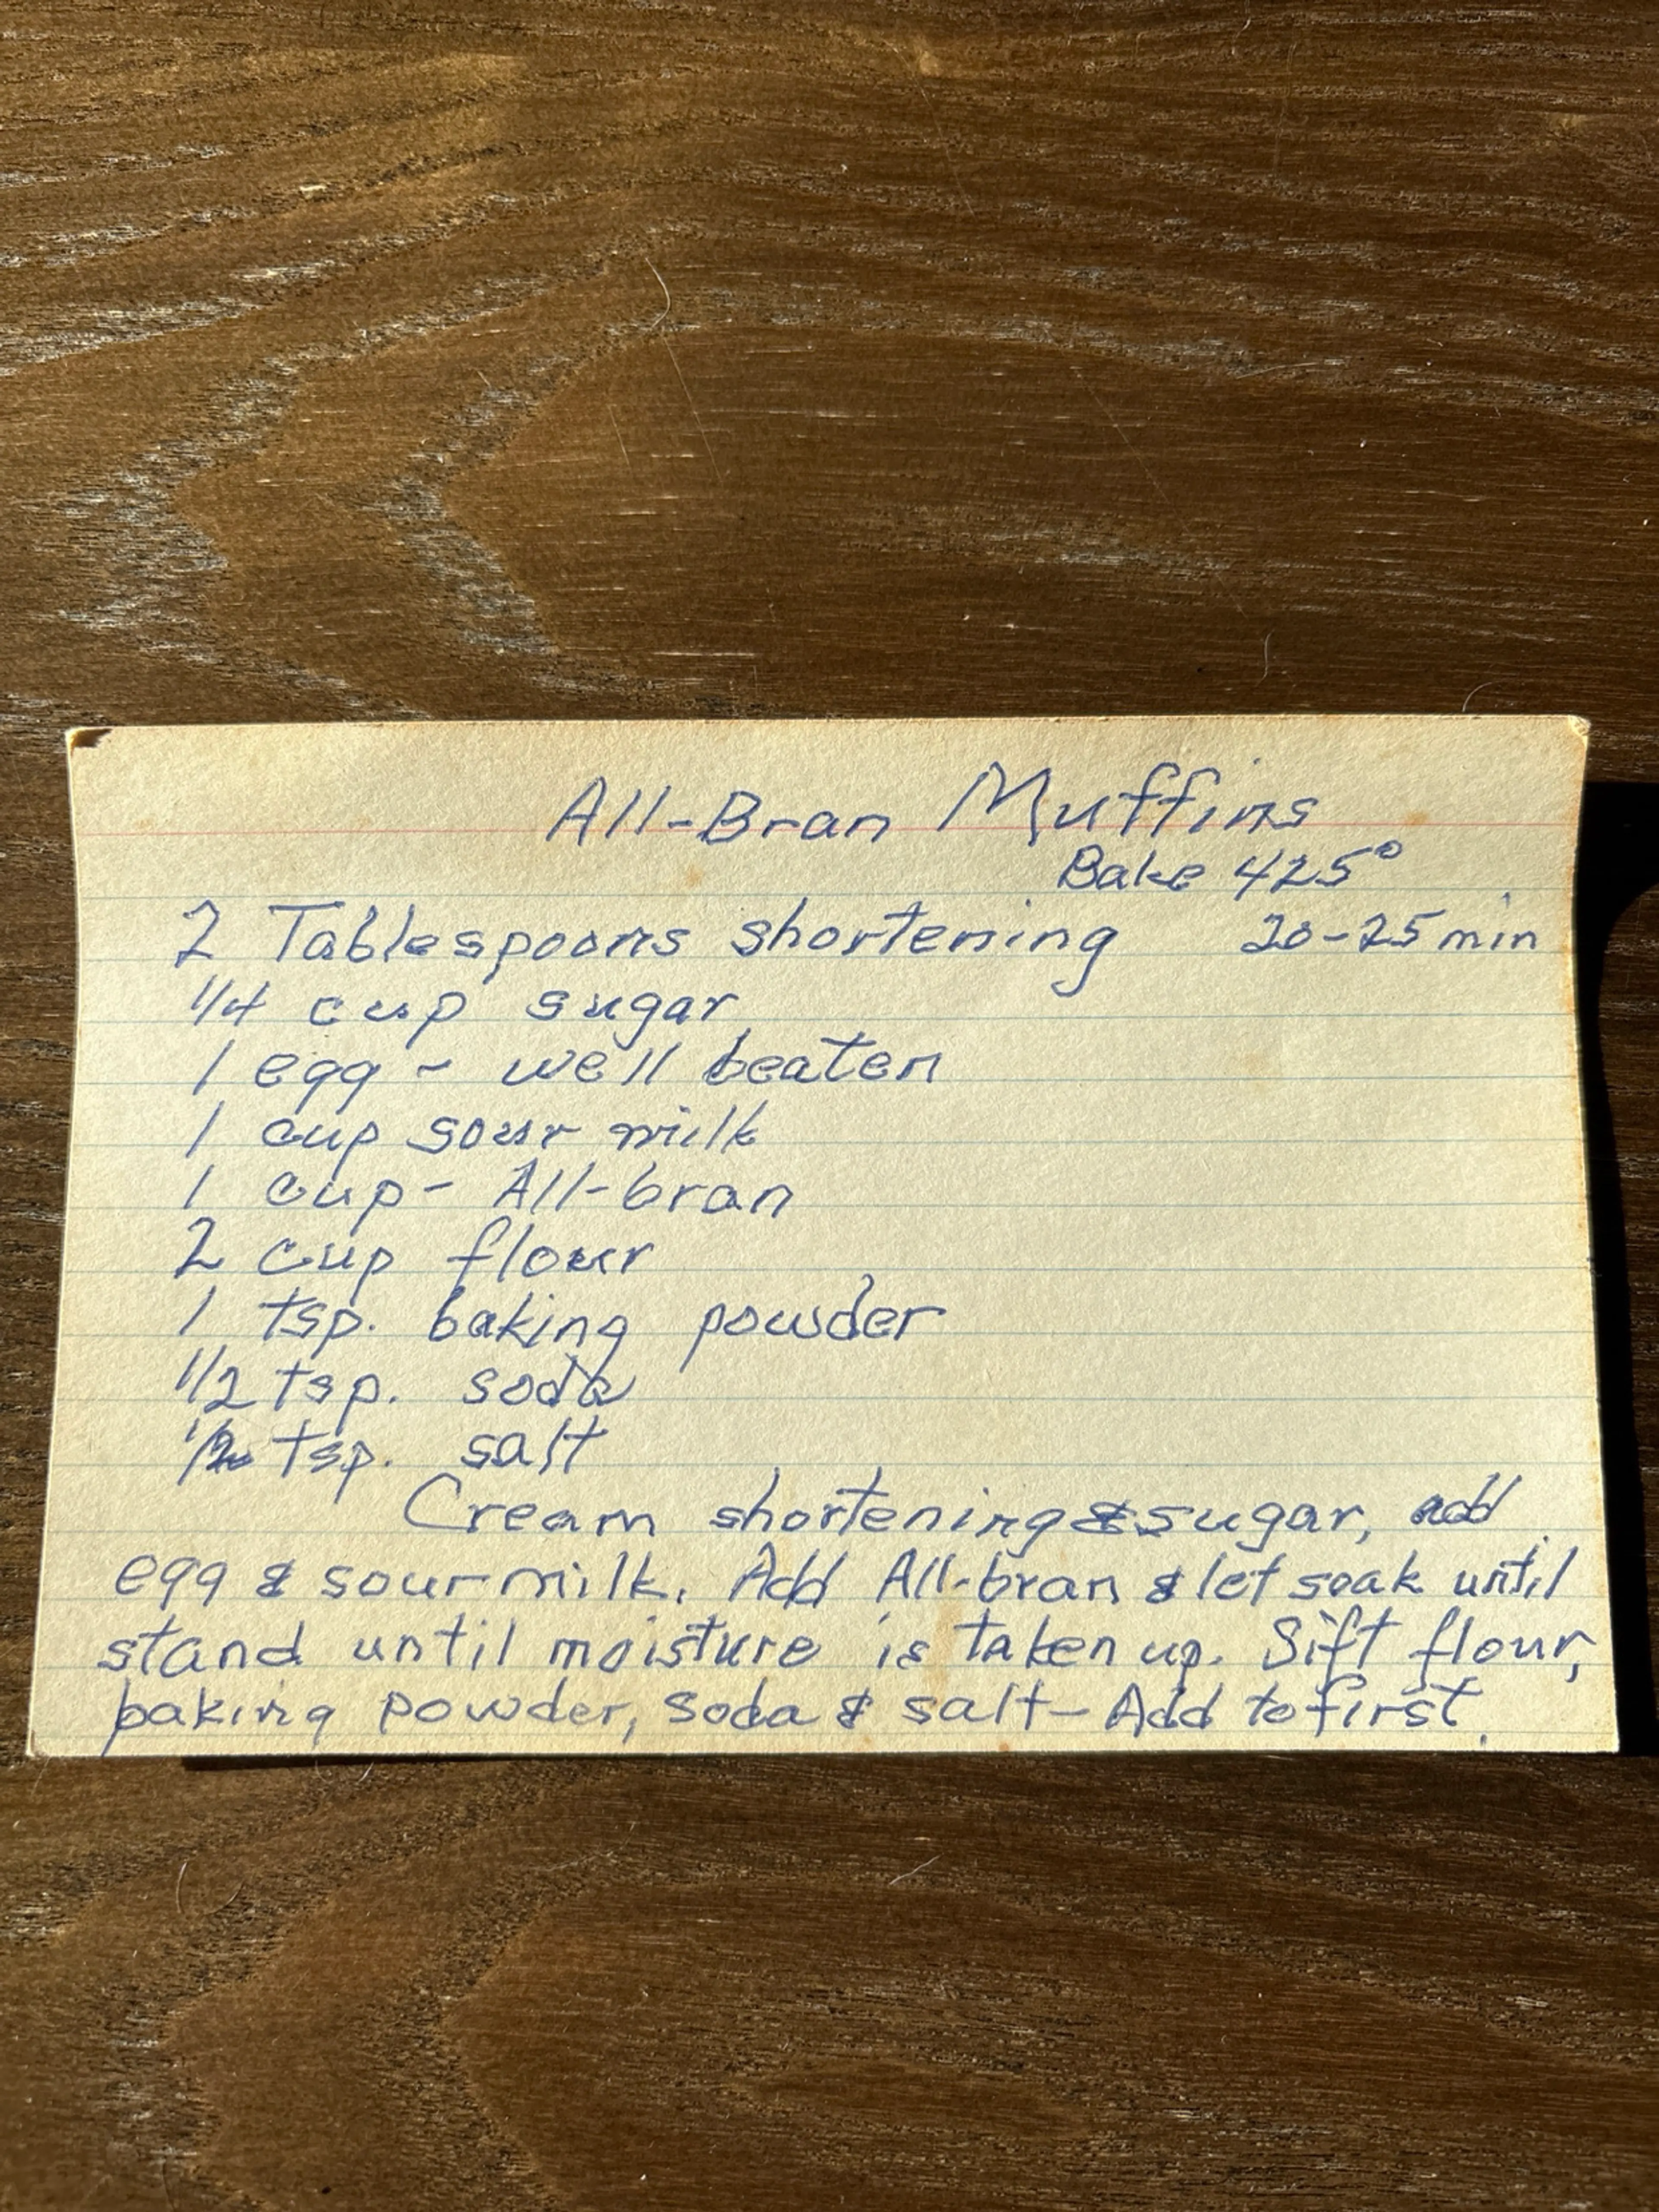 All-Bran Muffins
Bake 425°
2 Tablespoons shortening 20-25 min
1/4 cup sugar
1 egg - well beaten
1 cup sour milk
1 cup - All-bran
2 cup flour
1 tsp. baking powder
1/2 tsp. soda
1/2 tsp. salt
Cream shortening & sugar, add
egg & sour milk. Add All-bran & let soak until
stand until moisture is taken up. Sift flour,
baking powder, soda & salt - Add to first.